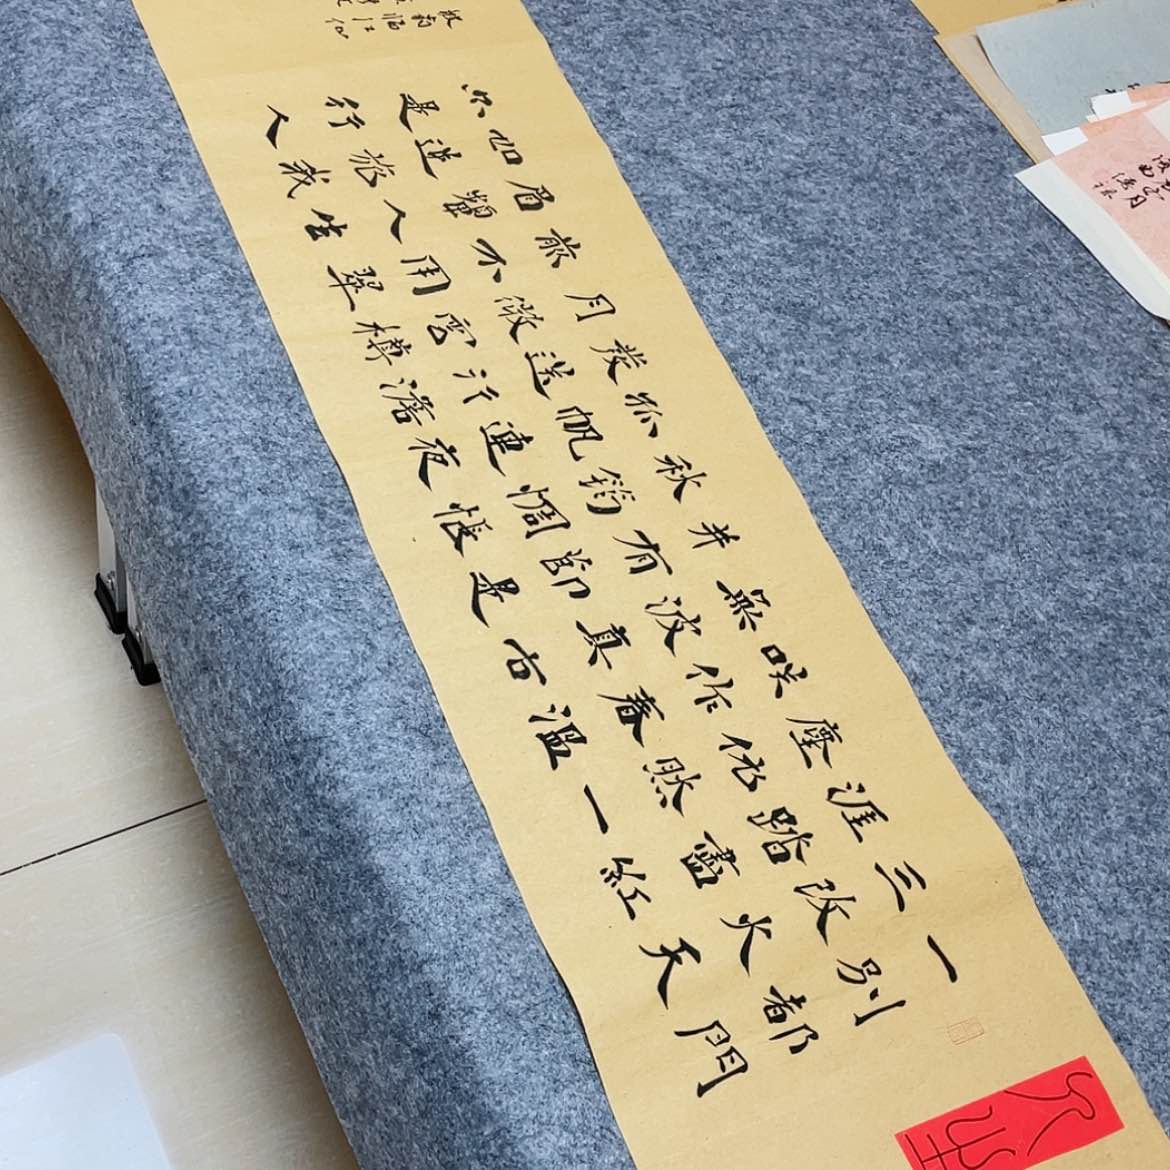 一別都門
三改火天
涯踏盡紅
塵依然一
咲作春溫
無波真古
井有節是
秋筠惆悵
孤帆連夜
發送行澹
月微雲樽
前不用翠
眉顰人生
如逆旅我
亦是行人
坡翁臨江仙